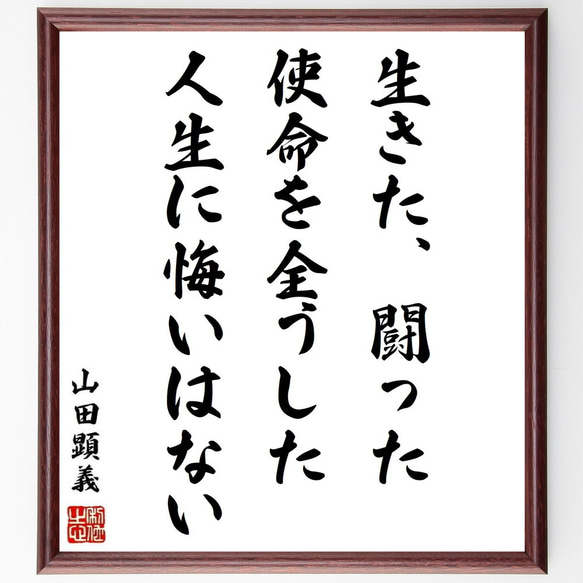 生きた、闘った
使命を全うした
人生に悔いはない
山田顕義